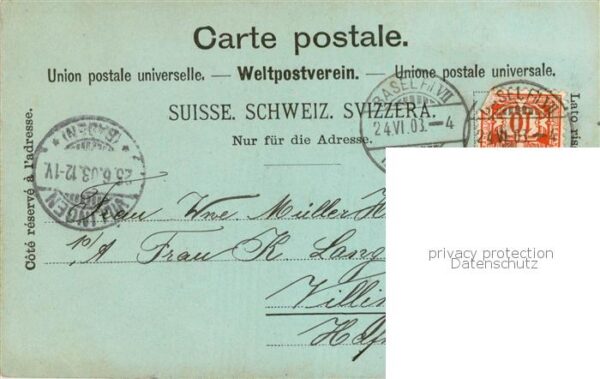 Carte postale.
Union postale universelle. — Weltpostverein. — Unione postale universale.
SUISSE. SCHWEIZ. SVIZZERA.
Nur für die Adresse.
Côté réservé à l'adresse.
BASEL
24.VI.03.–4
VILLINGEN
(BADEN)
25.6.03.12-1V.
Frau Wne Müller H
p/A Frau K Lang
Villin
privacy protection
Datenschutz